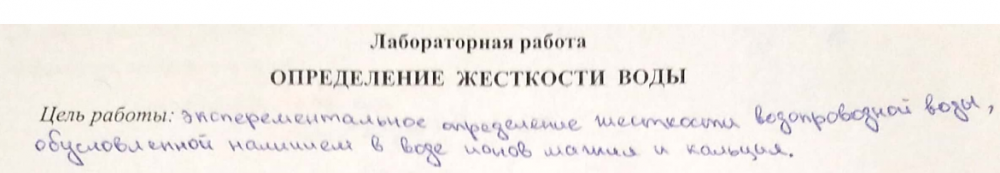 Лабораторная работа
ОПРЕДЕЛЕНИЕ ЖЕСТКОСТИ ВОДЫ
Цель работы: эксперементальное определение жесткости водопроводной воды,
обусловленной наличием в воде ионов магния и кальция.